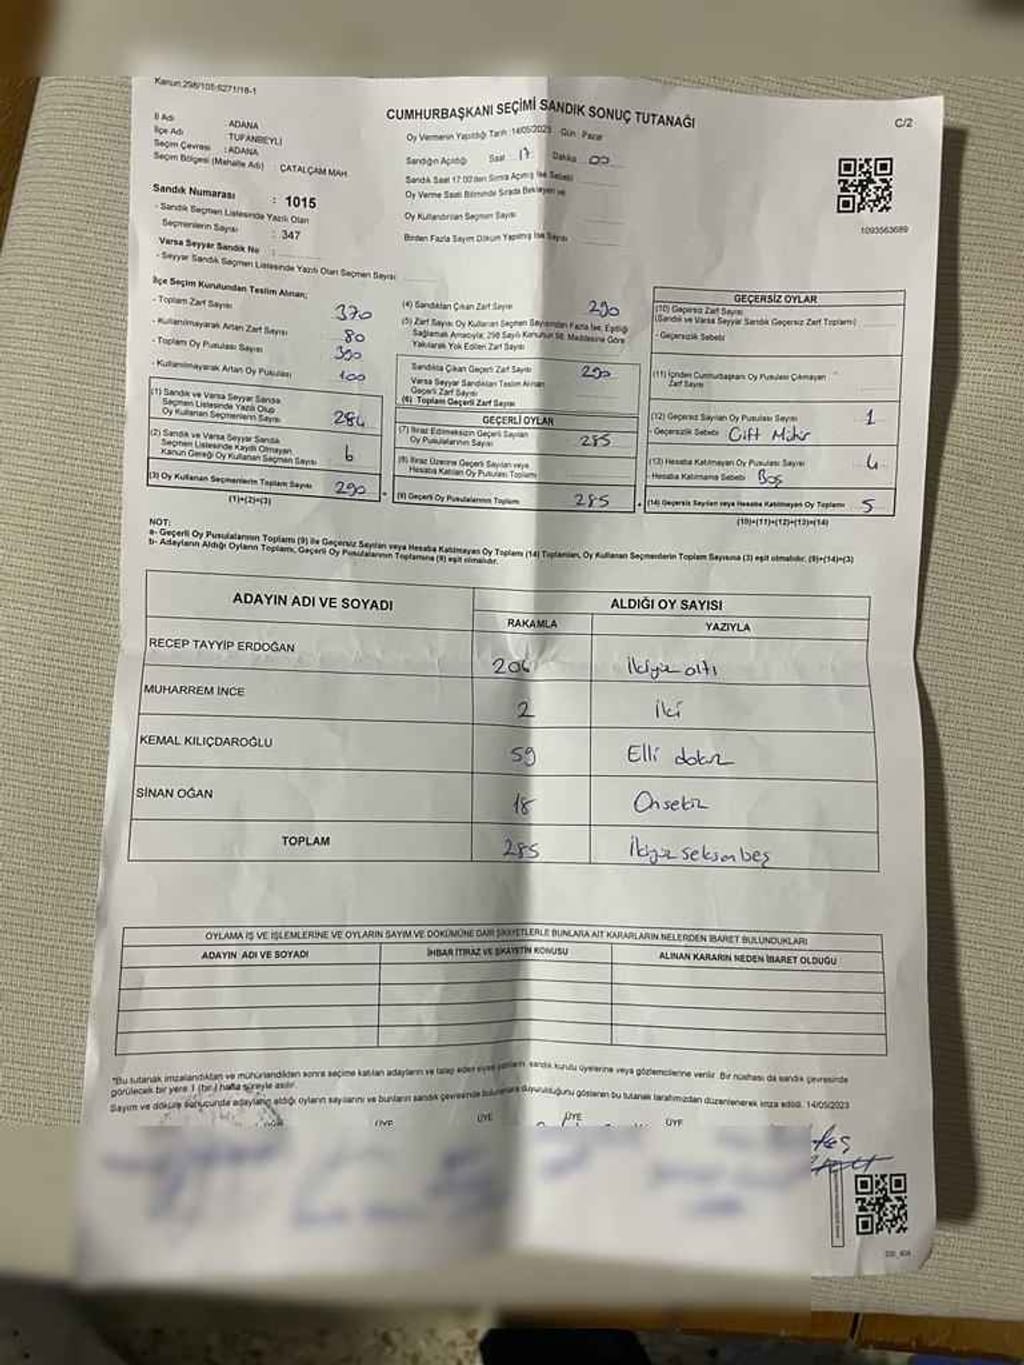 Kanun:298/105:6271/18-1
CUMHURBAŞKANI SEÇİMİ SANDIK SONUÇ TUTANAĞI
C/2
İl Adı : ADANA
İlçe Adı : TUFANBEYLİ
Seçim Çevresi : ADANA
Seçim Bölgesi (Mahalle Adı) : ÇATALÇAM MAH.
Oy Vermenin Yapıldığı Tarih : 14/05/2023 Gün : Pazar
Sandığın Açıldığı Saat 17 Dakika 00
Sandık Saat 17:00'den Sonra Açılmış İse Sebebi
Oy Verme Saati Bitiminde Sırada Bekleyen ve
Oy Kullandırılan Seçmen Sayısı
Birden Fazla Sayım Döküm Yapılmış İse Sayısı
1093563689
Sandık Numarası : 1015
- Sandık Seçmen Listesinde Yazılı Olan
Seçmenlerin Sayısı : 347
Varsa Seyyar Sandık No :
- Seyyar Sandık Seçmen Listesinde Yazılı Olan Seçmen Sayısı
İlçe Seçim Kurulundan Teslim Alınan;
- Toplam Zarf Sayısı 370
- Kullanılmayarak Artan Zarf Sayısı 80
- Toplam Oy Pusulası Sayısı 390
- Kullanılmayarak Artan Oy Pusulası 100
(1) Sandık ve Varsa Seyyar Sandık
Seçmen Listesinde Yazılı Olup
Oy Kullanan Seçmenlerin Sayısı 284
(2) Sandık ve Varsa Seyyar Sandık
Seçmen Listesinde Kaydı Olmayan
Kanun Gereği Oy Kullanan Seçmen Sayısı 6
(3) Oy Kullanan Seçmenlerin Toplam Sayısı 290
(1)+(2)=(3)
(4) Sandıktan Çıkan Zarf Sayısı 290
(5) Zarf Sayısı Oy Kullanan Seçmen Sayısından Fazla İse, Eşitliği
Sağlamak Amacıyla; 298 Sayılı Kanunun 98. Maddesine Göre
Yakılarak Yok Edilen Zarf Sayısı
Sandıkta Çıkan Geçerli Zarf Sayısı 290
Varsa Seyyar Sandıktan Teslim Alınan
Geçerli Zarf Sayısı
(6) Toplam Geçerli Zarf Sayısı
GEÇERLİ OYLAR
(7) İtiraz Edilmeksizin Geçerli Sayılan
Oy Pusulalarının Sayısı 285
(8) İtiraz Üzerine Geçerli Sayılan veya
Hesaba Katılan Oy Pusulası Toplamı
(9) Geçerli Oy Pusulalarının Toplamı 285
GEÇERSİZ OYLAR
(10) Geçersiz Zarf Sayısı
(Sandık ve Varsa Seyyar Sandık Geçersiz Zarf Toplamı)
- Geçersizlik Sebebi
(11) İçinden Cumhurbaşkanı Oy Pusulası Çıkmayan
Zarf Sayısı
(12) Geçersiz Sayılan Oy Pusulası Sayısı 1
- Geçersizlik Sebebi Çift Mühür
(13) Hesaba Katılmayan Oy Pusulası Sayısı 4
- Hesaba Katılmama Sebebi Boş
(14) Geçersiz Sayılan veya Hesaba Katılmayan Oy Toplamı 5
(10)+(11)+(12)+(13)=(14)
NOT:
a- Geçerli Oy Pusulalarının Toplamı (9) ile Geçersiz Sayılan veya Hesaba Katılmayan Oy Toplamı (14) Toplamları, Oy Kullanan Seçmenlerin Toplam Sayısına (3) eşit olmalıdır. (9)+(14)=(3)
b- Adayların Aldığı Oyların Toplamı, Geçerli Oy Pusulalarının Toplamına (9) eşit olmalıdır.
ADAYIN ADI VE SOYADI
ALDIĞI OY SAYISI
RAKAMLA YAZIYLA
RECEP TAYYİP ERDOĞAN 206 İkiyüz altı
MUHARREM İNCE 2 İki
KEMAL KILIÇDAROĞLU 59 Elli dokuz
SİNAN OĞAN 18 Onsekiz
TOPLAM 285 İkiyüz seksen beş
OYLAMA İŞ VE İŞLEMLERİNE VE OYLARIN SAYIM VE DÖKÜMÜNE DAİR ŞİKAYETLERLE BUNLARA AİT KARARLARIN NELERDEN İBARET BULUNDUKLARI
ADAYIN ADI VE SOYADI İHBAR İTİRAZ VE ŞİKAYETİN KONUSU ALINAN KARARIN NEDEN İBARET OLDUĞU
"Bu tutanak imzalandıktan ve mühürlendikten sonra seçime katılan adayların ve talep eden siyasi partilerin sandık kurulu üyelerine veya gözlemcilerine verilir. Bir nüshası da sandık çevresinde
görülecek bir yere 1 (bir) hafta süreyle asılır.
Sayım ve döküm sonucunda adayların aldığı oyların sayılarını ve bunların sandık çevresinde bulunanlara duyurulduğunu gösteren bu tutanak tarafımızdan düzenlenerek imza edildi. 14/05/2023
ÜYE ÜYE ÜYE ÜYE